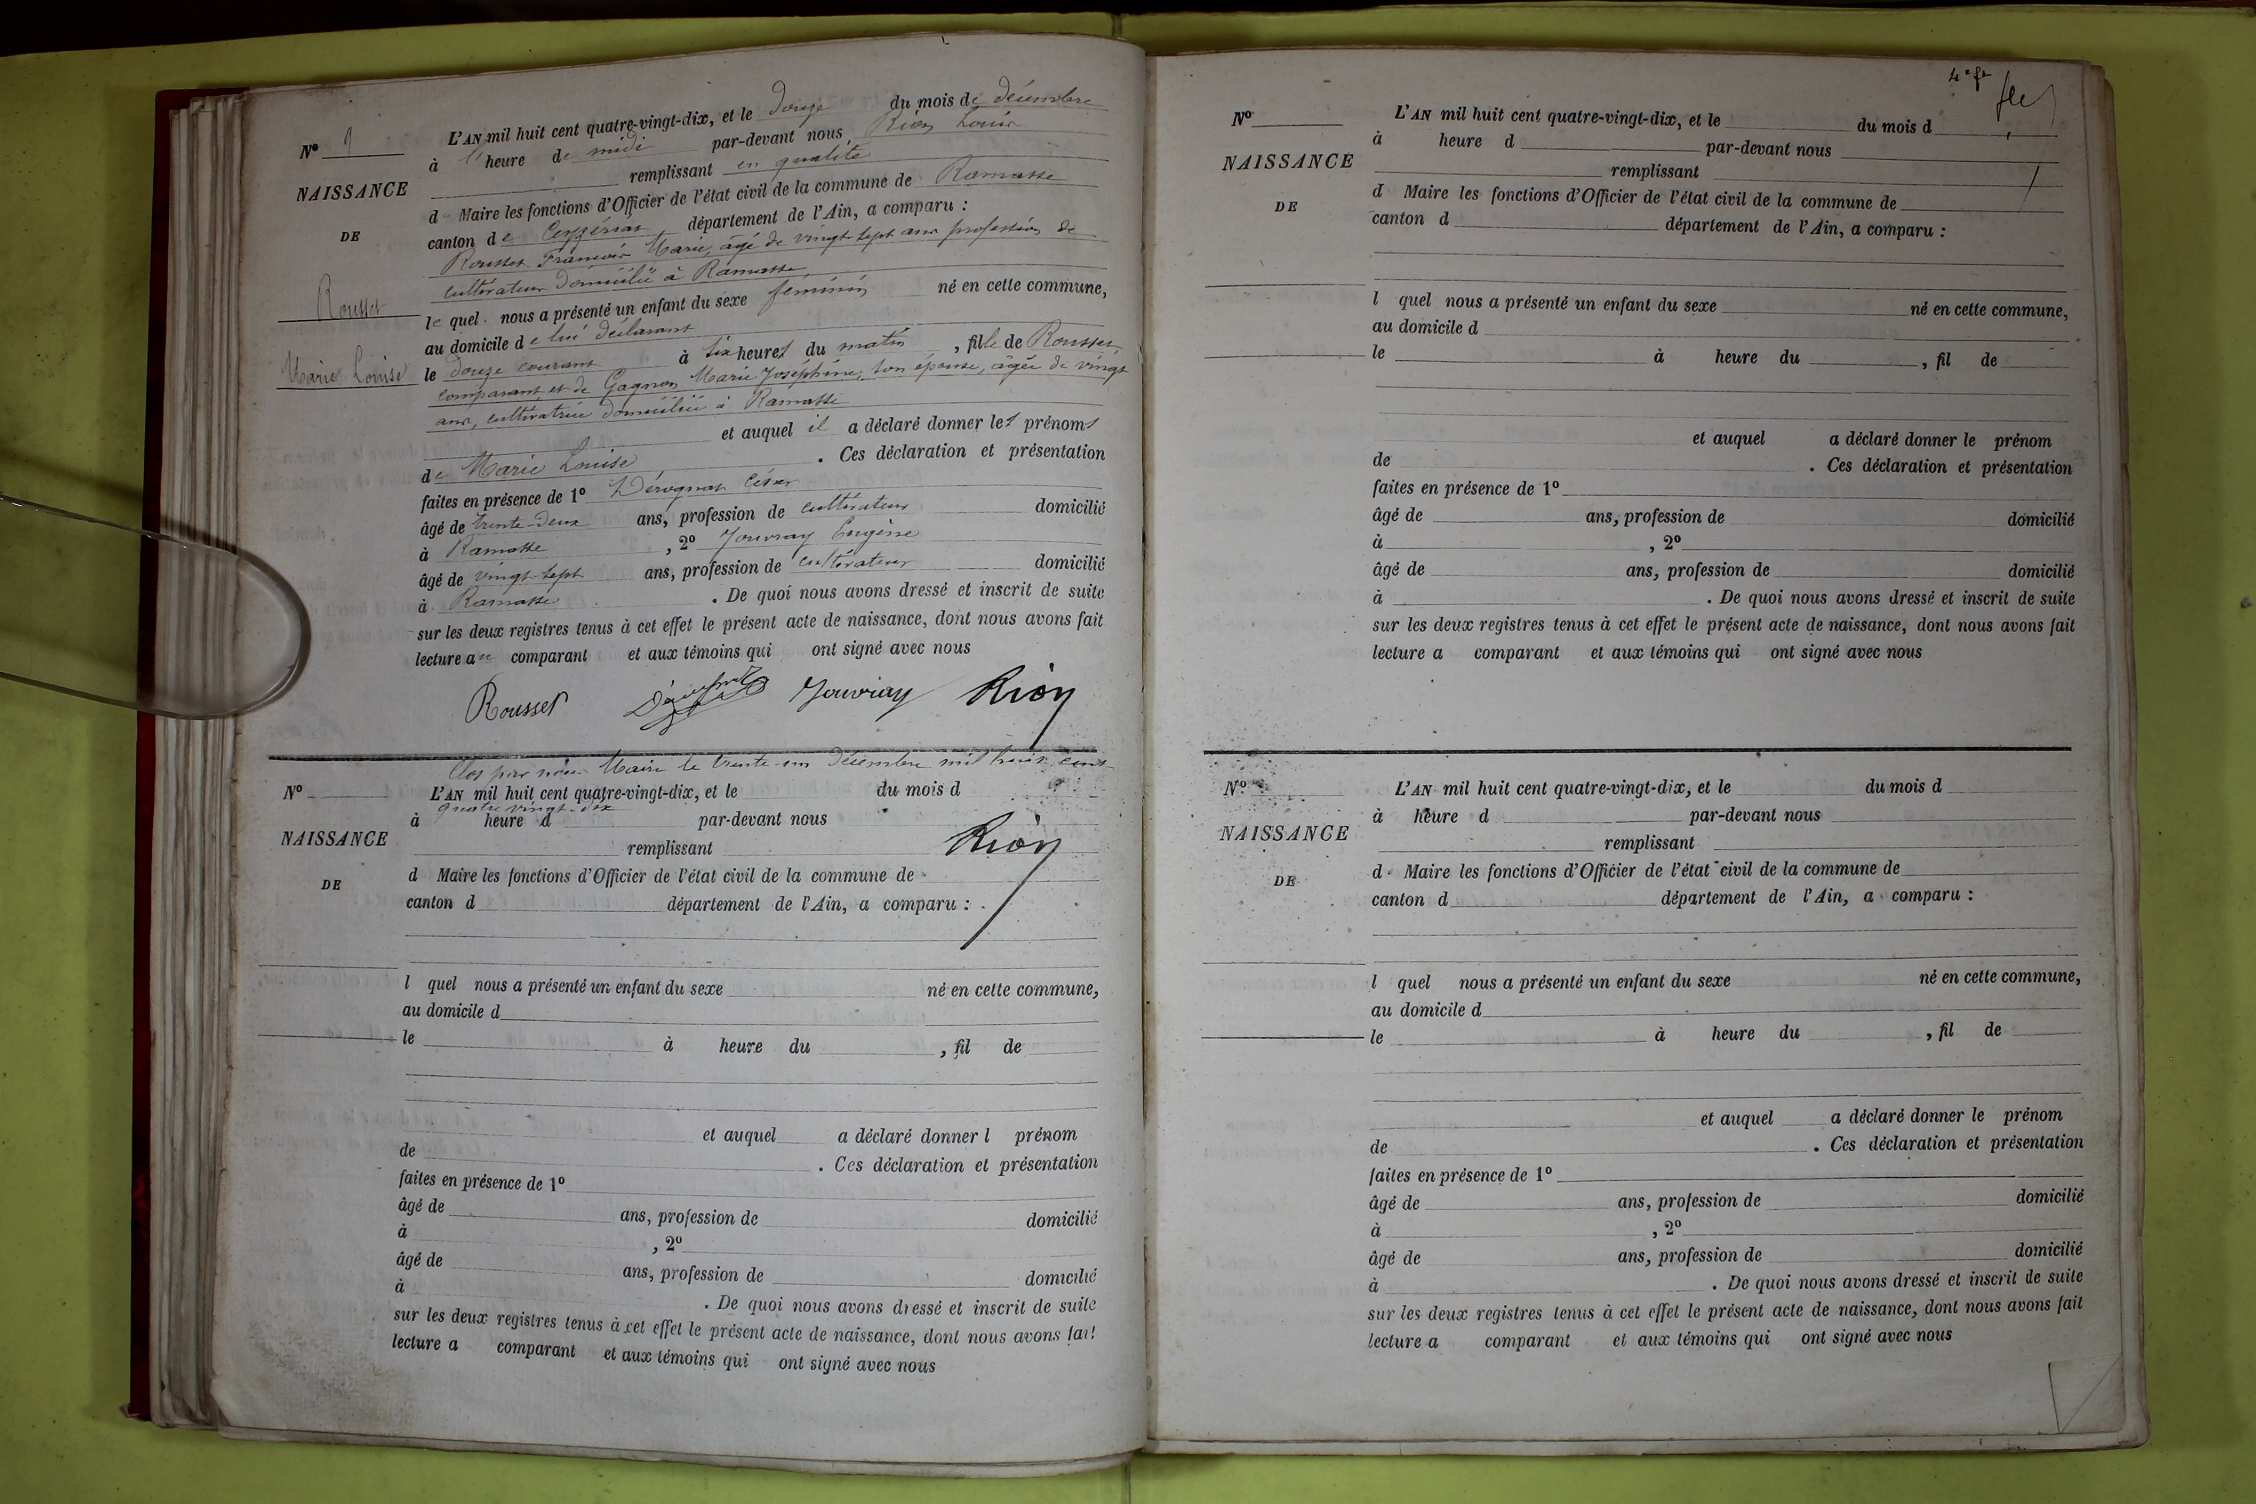 L'AN mil huit cent quatre-vingt-dix, et le douze du mois de décembre
N° 9
à l'heure de midi par-devant nous Rion Louis
remplissant en qualité
NAISSANCE
d Maire les fonctions d'Officier de l'état civil de la commune de Ramasse
DE
canton de Ceyzériat département de l'Ain, a comparu :
Rousset François Marie, âgé de vingt sept ans profession de
cultivateur domicilié à Ramasse
Rousset
lequel nous a présenté un enfant du sexe féminin né en cette commune,
au domicile de lui déclarant
Marie Louise
le douze courant à six heures du matin, fille de Rousset
comparant et de Gagnon Marie Joséphine, son épouse, âgée de vingt
ans, cultivatrice domiciliée à Ramasse
et auquel il a déclaré donner les prénoms
de Marie Louise. Ces déclaration et présentation
faites en présence de 1° Dérognat César
âgé de trente-deux ans, profession de cultivateur domicilié
à Ramasse, 2° Jouvray Eugène
âgé de vingt-sept ans, profession de cultivateur domicilié
à Ramasse. De quoi nous avons dressé et inscrit de suite
sur les deux registres tenus à cet effet le présent acte de naissance, dont nous avons fait
lecture au comparant et aux témoins qui ont signé avec nous
Rousset Jouvray Rion
Clos par nous Maire le trente-un Décembre mil huit cent
quatre vingt-dix
Rion
N°
NAISSANCE
DE
L'AN mil huit cent quatre-vingt-dix, et le du mois d
à heure d par-devant nous
remplissant
d Maire les fonctions d'Officier de l'état civil de la commune de
canton d département de l'Ain, a comparu :
l quel nous a présenté un enfant du sexe né en cette commune,
au domicile d
le à heure du , fil de
et auquel a déclaré donner l prénom
de . Ces déclaration et présentation
faites en présence de 1°
âgé de ans, profession de domicilié
à , 2°
âgé de ans, profession de domicilié
à . De quoi nous avons dressé et inscrit de suite
sur les deux registres tenus à cet effet le présent acte de naissance, dont nous avons fait
lecture a comparant et aux témoins qui ont signé avec nous
N°
NAISSANCE
DE
L'AN mil huit cent quatre-vingt-dix, et le du mois d
à heure d par-devant nous
remplissant
d Maire les fonctions d'Officier de l'état civil de la commune de
canton d département de l'Ain, a comparu :
l quel nous a présenté un enfant du sexe né en cette commune,
au domicile d
le à heure du , fil de
et auquel a déclaré donner le prénom
de . Ces déclaration et présentation
faites en présence de 1°
âgé de ans, profession de domicilié
à , 2°
âgé de ans, profession de domicilié
à . De quoi nous avons dressé et inscrit de suite
sur les deux registres tenus à cet effet le présent acte de naissance, dont nous avons fait
lecture a comparant et aux témoins qui ont signé avec nous
N°
NAISSANCE
DE
L'AN mil huit cent quatre-vingt-dix, et le du mois d
à heure d par-devant nous
remplissant
d Maire les fonctions d'Officier de l'état civil de la commune de
canton d département de l'Ain, a comparu :
l quel nous a présenté un enfant du sexe né en cette commune,
au domicile d
le à heure du , fil de
et auquel a déclaré donner le prénom
de . Ces déclaration et présentation
faites en présence de 1°
âgé de ans, profession de domicilié
à , 2°
âgé de ans, profession de domicilié
à . De quoi nous avons dressé et inscrit de suite
sur les deux registres tenus à cet effet le présent acte de naissance, dont nous avons fait
lecture a comparant et aux témoins qui ont signé avec nous